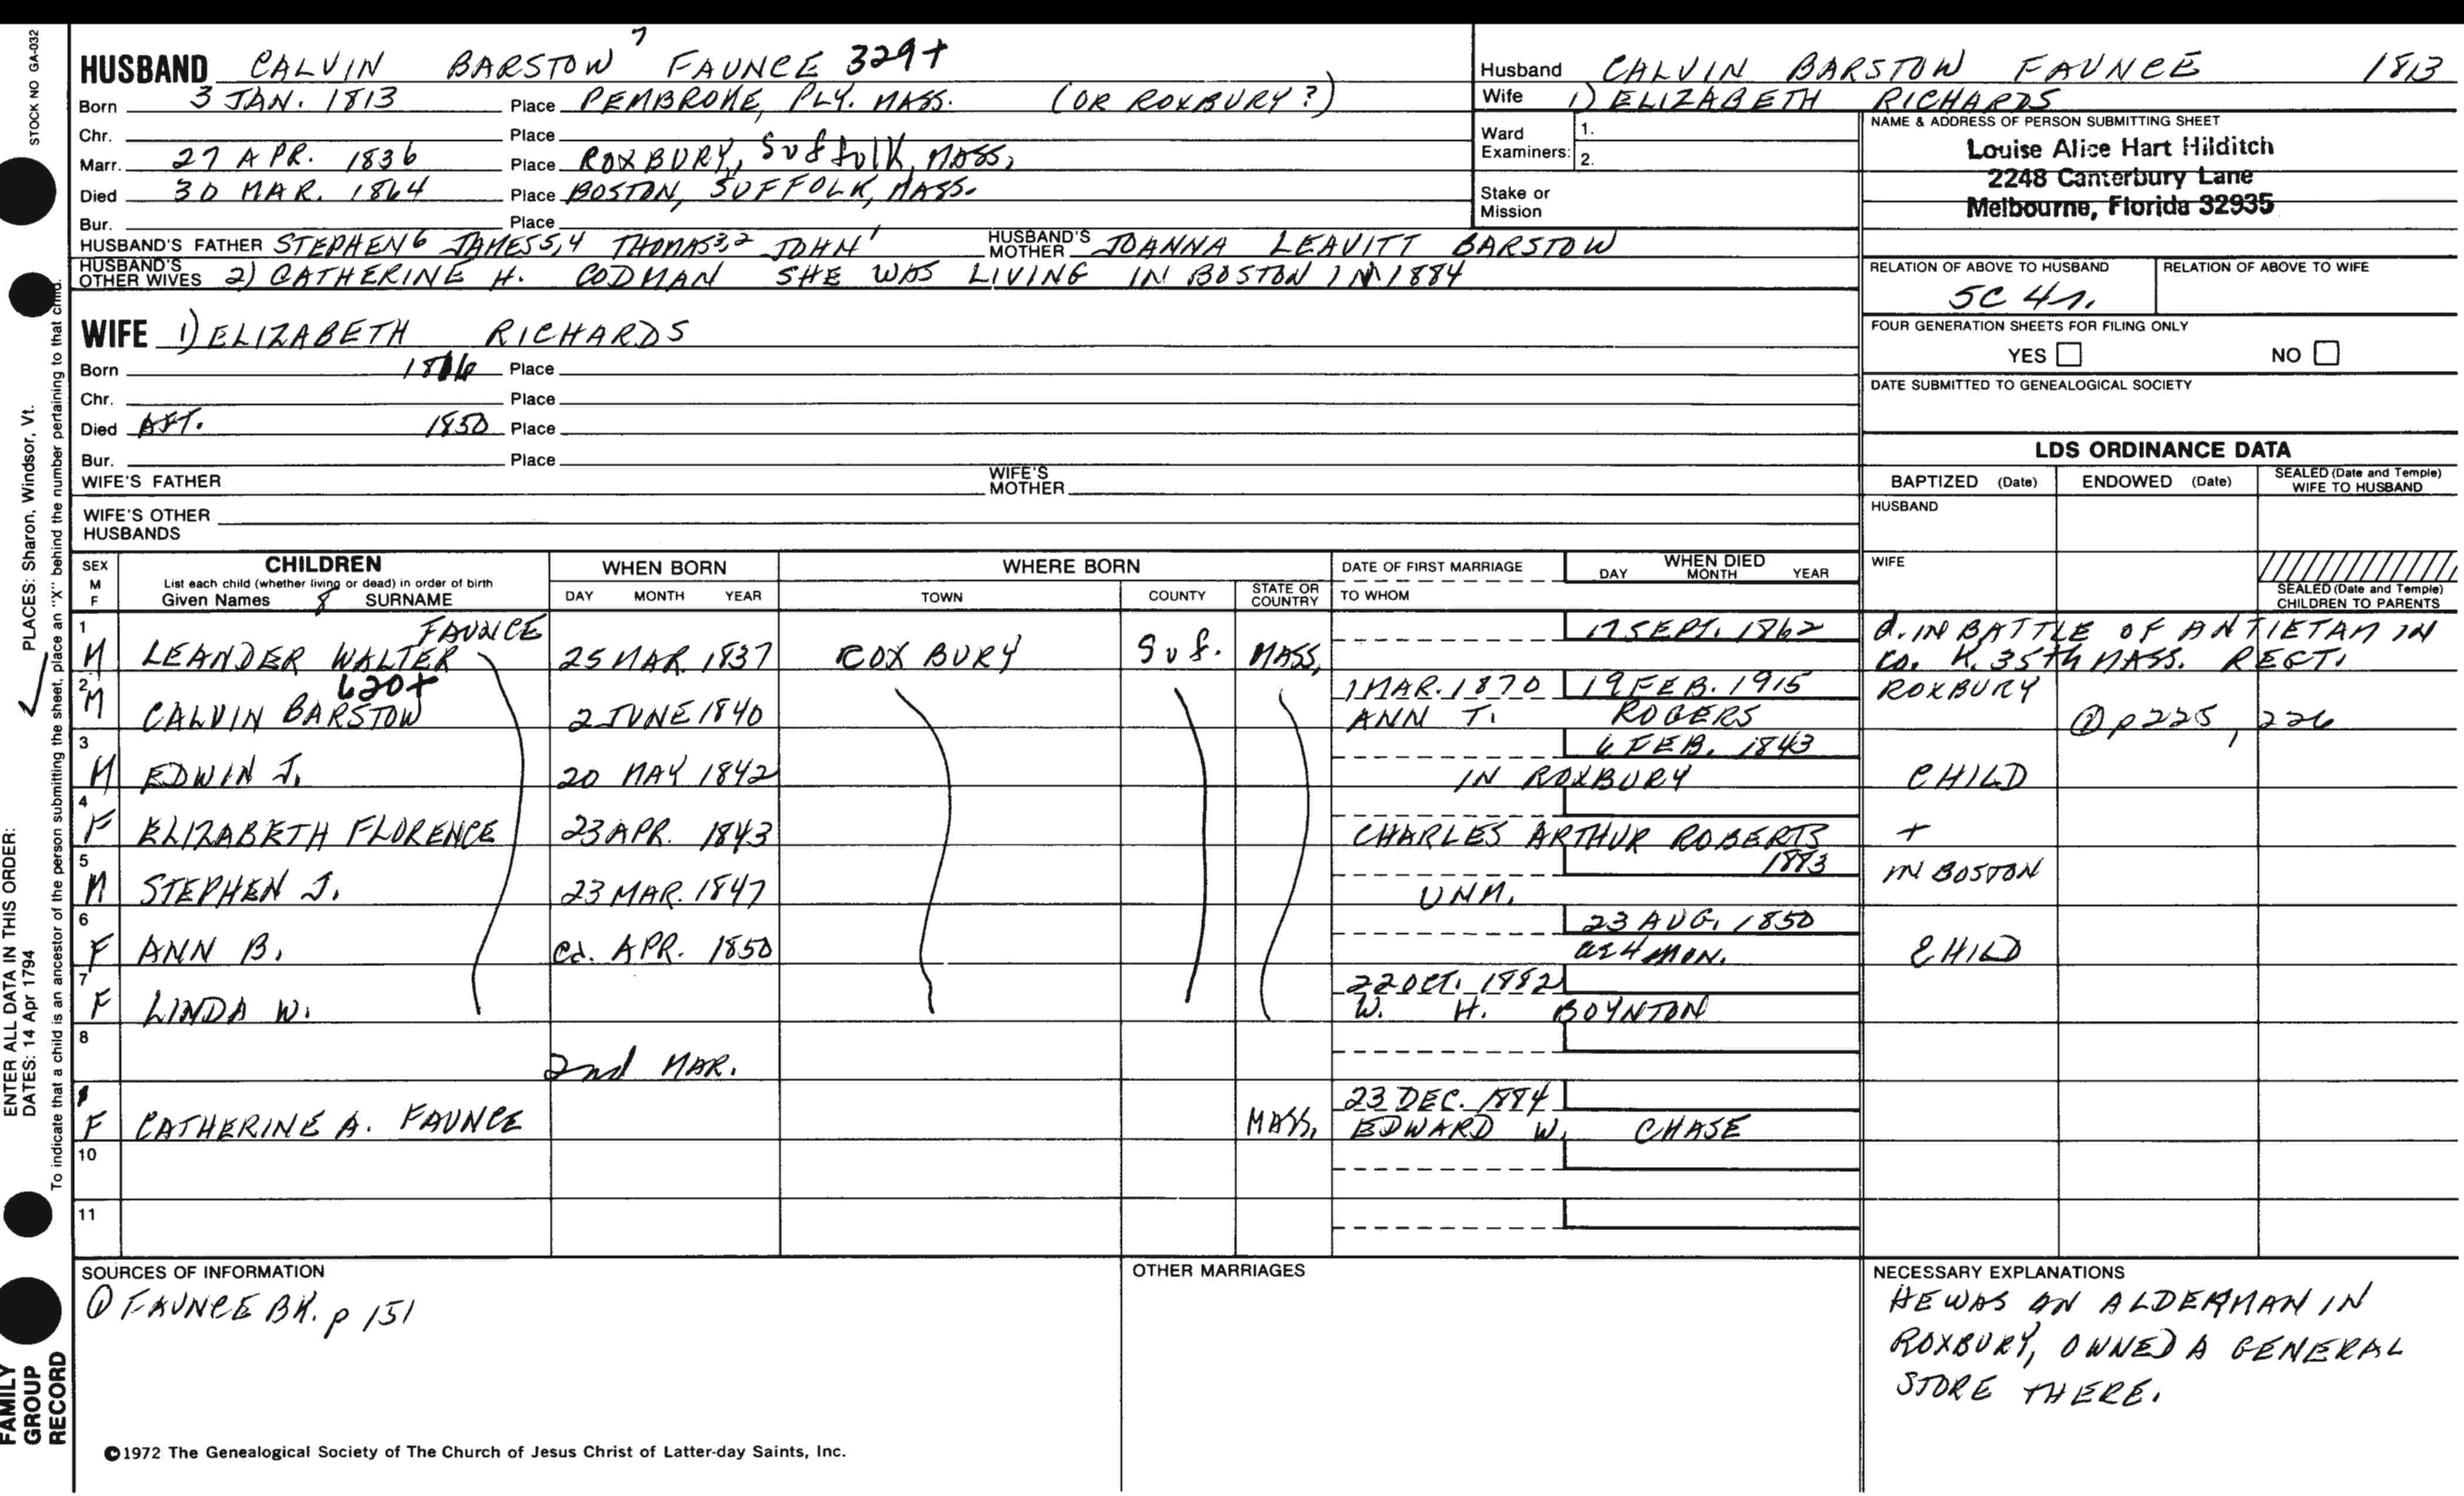 STOCK NO GA-032
HUSBAND CALVIN BARSTOW 7 FAUNCE 329+
Born 3 JAN. 1813 Place PEMBROKE, PLY. MASS. (OR ROXBURY?)
Chr. Place
Marr. 27 APR. 1836 Place ROXBURY, Suffolk, MASS,
Died 30 MAR. 1864 Place BOSTON, SUFFOLK, MASS.
Bur. Place
HUSBAND'S FATHER STEPHEN6 JAMES5,4 THOMAS3,2 JOHN1 HUSBAND'S MOTHER JOANNA LEAVITT BARSTOW
HUSBAND'S OTHER WIVES 2) CATHERINE H. CODMAN SHE WAS LIVING IN BOSTON IN 1884
WIFE 1) ELIZABETH RICHARDS
Born 1816 Place
Chr. Place
Died AFT. 1850 Place
Bur. Place
WIFE'S FATHER WIFE'S MOTHER
WIFE'S OTHER HUSBANDS
Husband CALVIN BARSTOW FAUNCE 1813
Wife 1) ELIZABETH RICHARDS
Ward Examiners: 1.
2.
Stake or Mission
NAME & ADDRESS OF PERSON SUBMITTING SHEET
Louise Alice Hart Hilditch
2248 Canterbury Lane
Melbourne, Florida 32935
RELATION OF ABOVE TO HUSBAND RELATION OF ABOVE TO WIFE
5C 4r.
FOUR GENERATION SHEETS FOR FILING ONLY
YES NO
DATE SUBMITTED TO GENEALOGICAL SOCIETY
LDS ORDINANCE DATA
BAPTIZED (Date) ENDOWED (Date) SEALED (Date and Temple) WIFE TO HUSBAND
HUSBAND
WIFE
SEALED (Date and Temple) CHILDREN TO PARENTS
SEX M F CHILDREN WHEN BORN WHERE BORN DATE OF FIRST MARRIAGE WHEN DIED
List each child (whether living or dead) in order of birth
Given Names 8 SURNAME DAY MONTH YEAR TOWN COUNTY STATE OR COUNTRY TO WHOM DAY MONTH YEAR
1 FAUNCE 17 SEPT. 1862 d. IN BATTLE OF ANTIETAM IN
M LEANDER WALTER 25 MAR. 1837 ROXBURY Suf. MASS, Co. K. 35th MASS. REGT.
2 620+ 1 MAR. 1870 19 FEB. 1915 ROXBURY
M CALVIN BARSTOW 2 JUNE 1840 ANN T. ROGERS ① p 225, 226
3 6 FEB. 1843
M EDWIN J. 20 MAY 1842 IN ROXBURY CHILD
4
F ELIZABETH FLORENCE 23 APR. 1843 CHARLES ARTHUR ROBERTS +
5 1883 IN BOSTON
M STEPHEN J. 23 MAR. 1847 UNM.
6 23 AUG. 1850
F ANN B. ca. APR. 1850 ae 4 MON. CHILD
7 22 OCT. 1882
F LINDA W. W. H. BOYNTON
8
2nd MAR.
23 DEC. 1884
F CATHERINE A. FAUNCE MASS, EDWARD W. CHASE
10
11
SOURCES OF INFORMATION
① FAUNCE BK. p 151
OTHER MARRIAGES
NECESSARY EXPLANATIONS
HE WAS AN ALDERMAN IN
ROXBURY, OWNED A GENERAL
STORE THERE.
©1972 The Genealogical Society of The Church of Jesus Christ of Latter-day Saints, Inc.
ENTER ALL DATA IN THIS ORDER: PLACES: Sharon, Windsor, Vt.
DATES: 14 Apr 1794
To indicate that a child is an ancestor of the person submitting the sheet, place an "X" behind the number pertaining to that child.
FAMILY
GROUP
RECORD